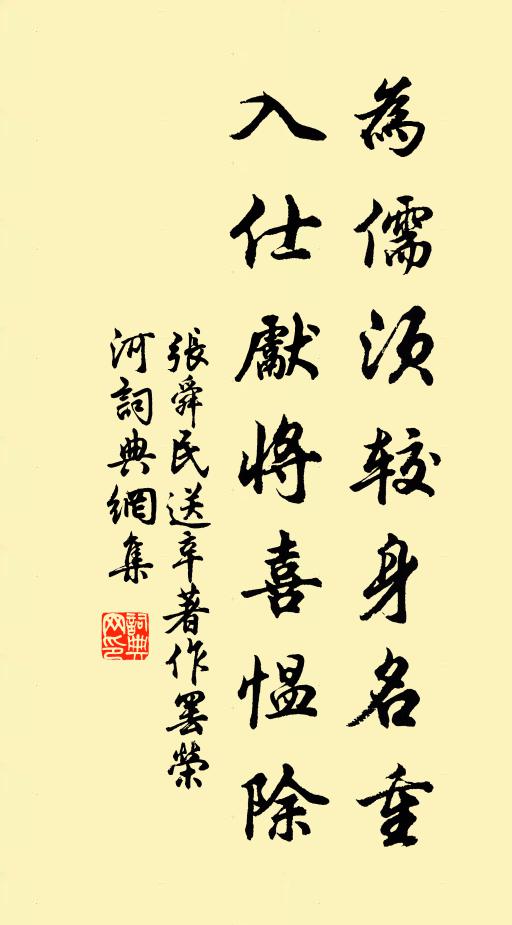 為儒須較身名重
入仕獻將喜愠除
張舜民送辛著作罢榮
河詞典網集
詞典
网印